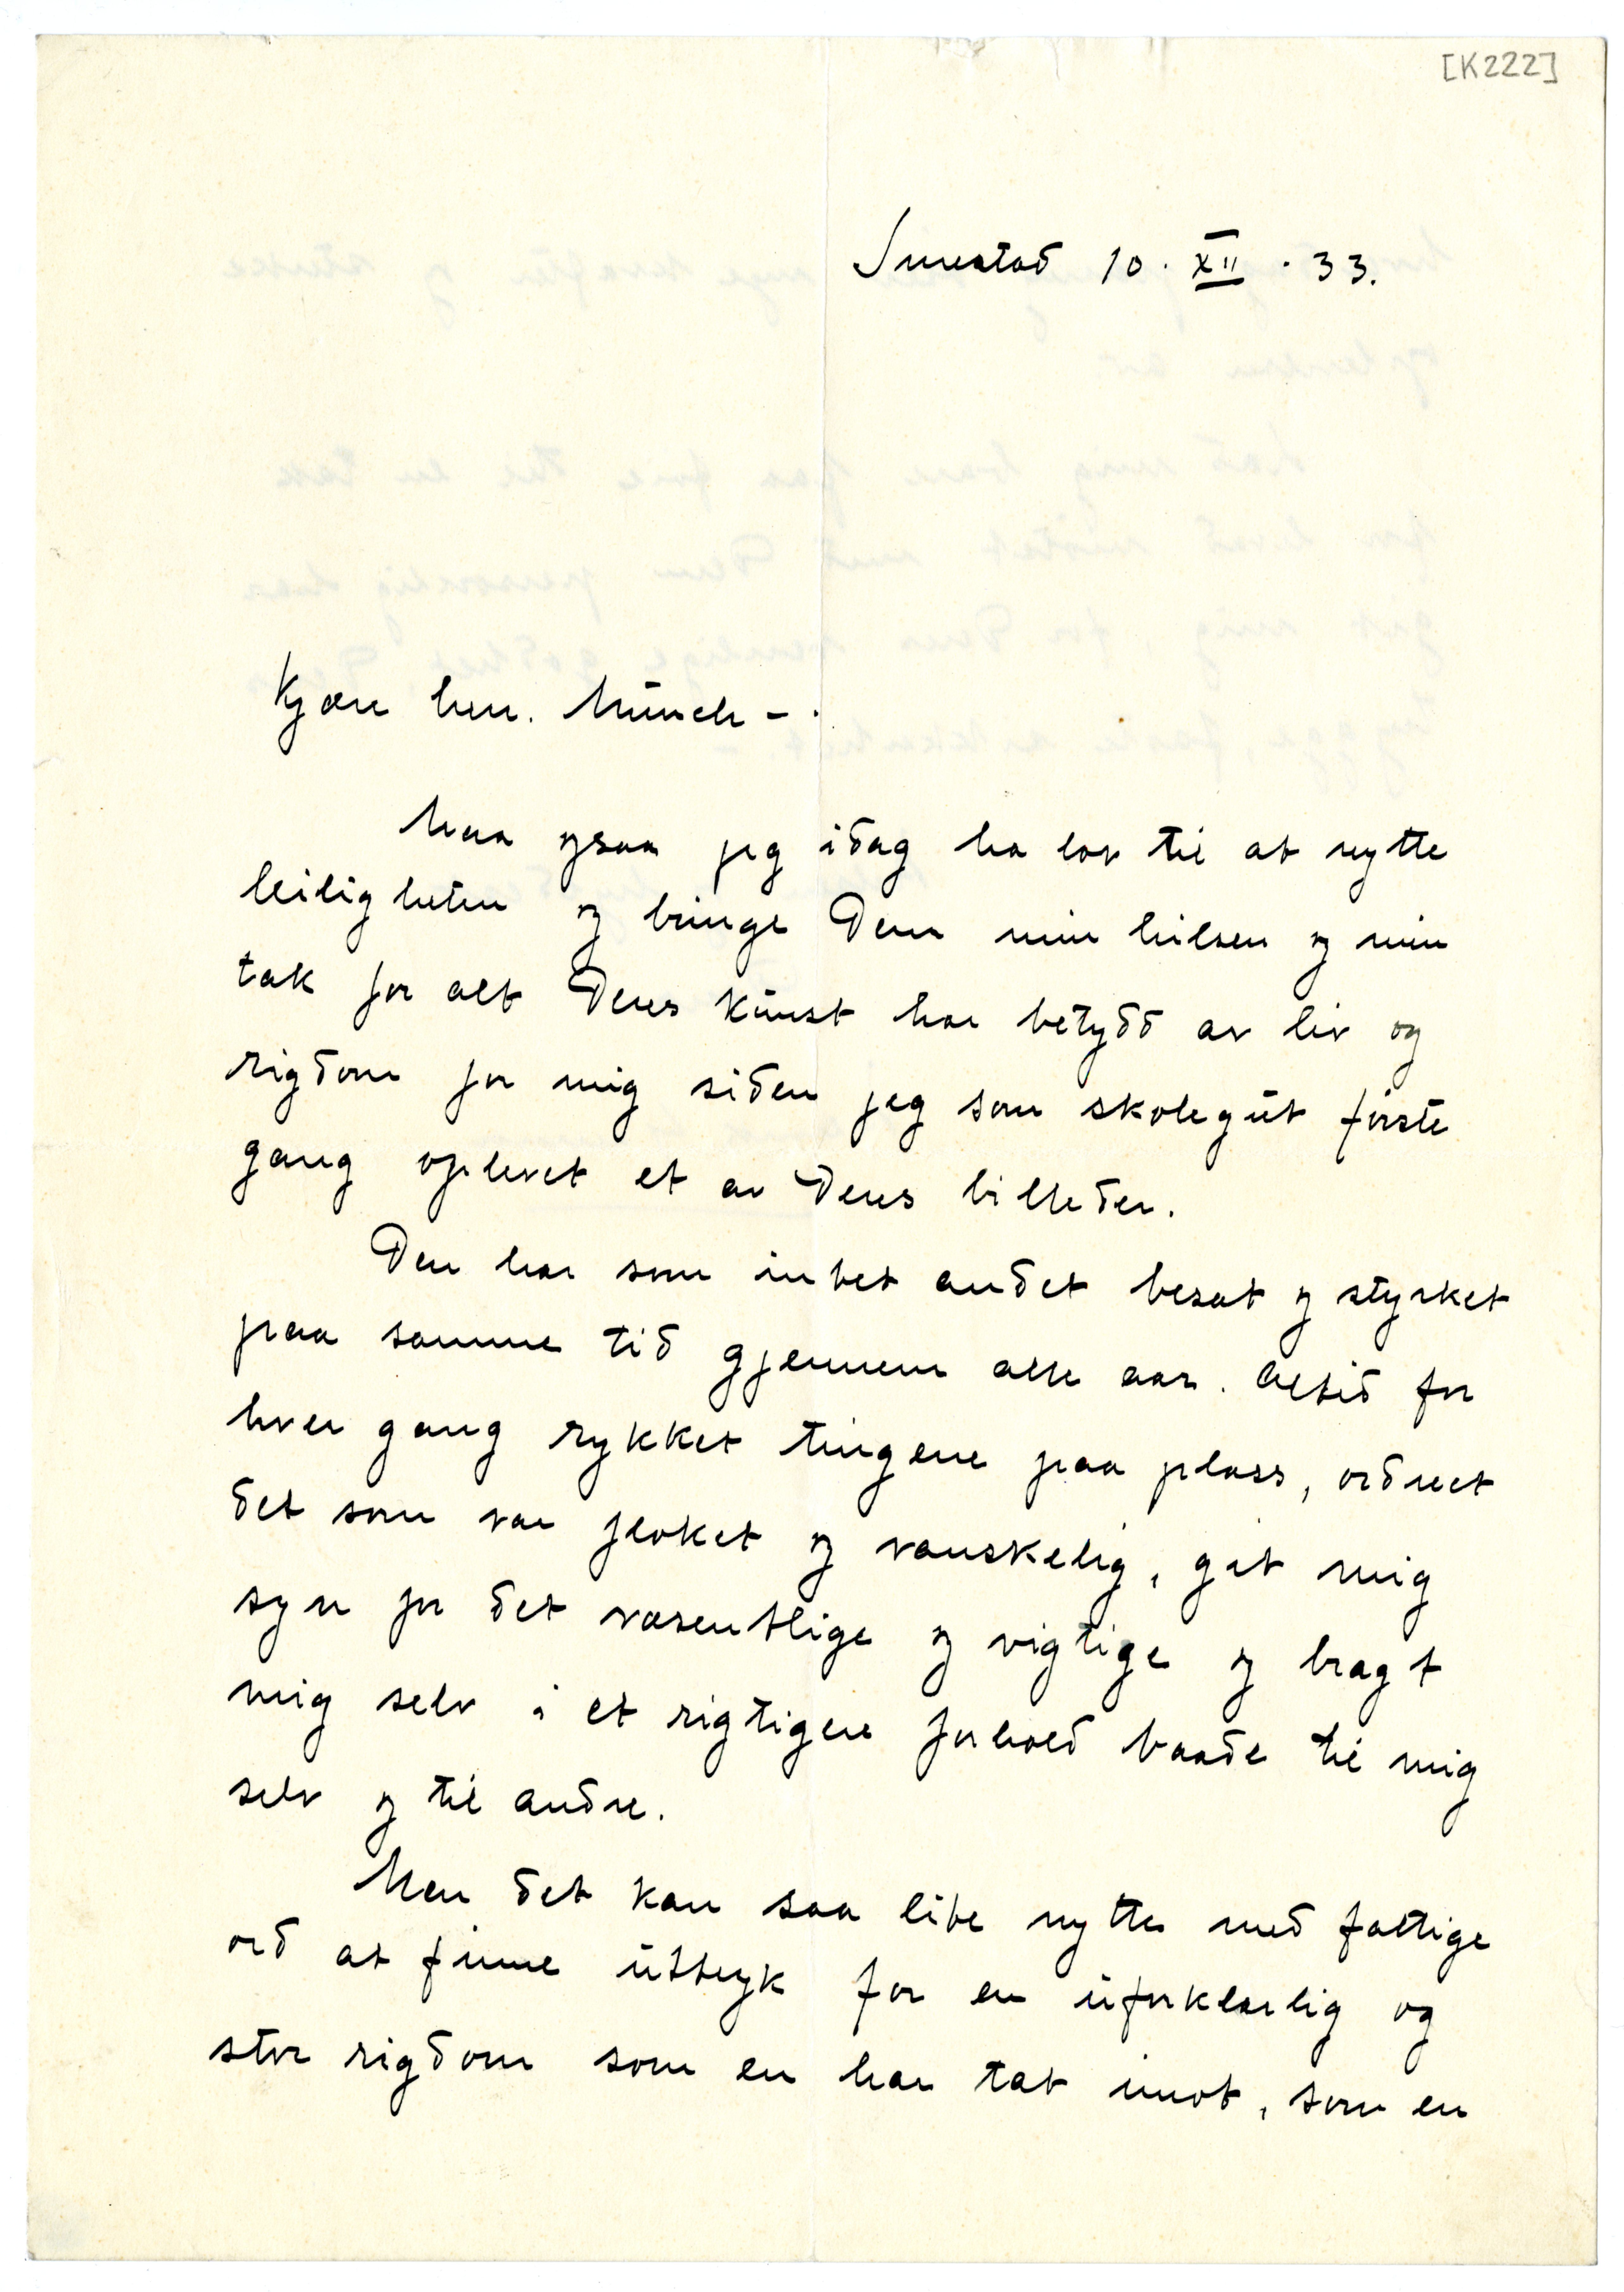 [K222]
Smestad 10. XII . 33.
Kjære herr. Munch -.
Maa ogsaa jeg idag ha lov til at nytte
leiligheten og bringe Dem min hilsen og min
tak for alt Deres kunst har betydd av liv og
rigdom for mig siden jeg som skolegut første
gang oplevet et av Deres billeder.
Den har som intet andet besat og styrket
paa samme tid gjennem alle aar. Altid for
hver gang rykket tingene paa plass, ordnet
det som var floket og vanskelig, git mig
syn for det væsentlige og vigtige og bragt
mig selv i et rigtigere forhold baade til mig
selv og til andre.
Men det kan saa lite nytte med fattige
ord at finne uttryk for en uforklarlig og
stor rigdom som en har tat imot, som en